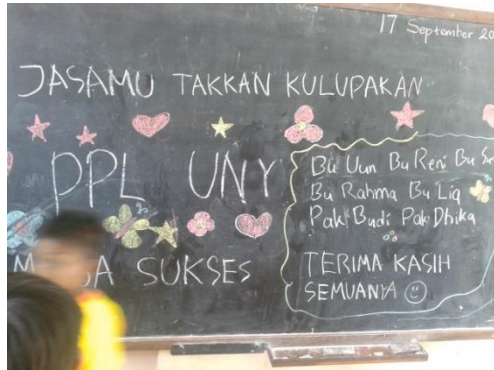 17 September
JASAMU TAKKAN KULUPAKAN
PPL UNY
SUKSES
Bu Uun Bu Reni Bu
Bu Rahma Bu Liq
Pak Budi Pak Dhika
TERIMA KASIH
SEMUANYA